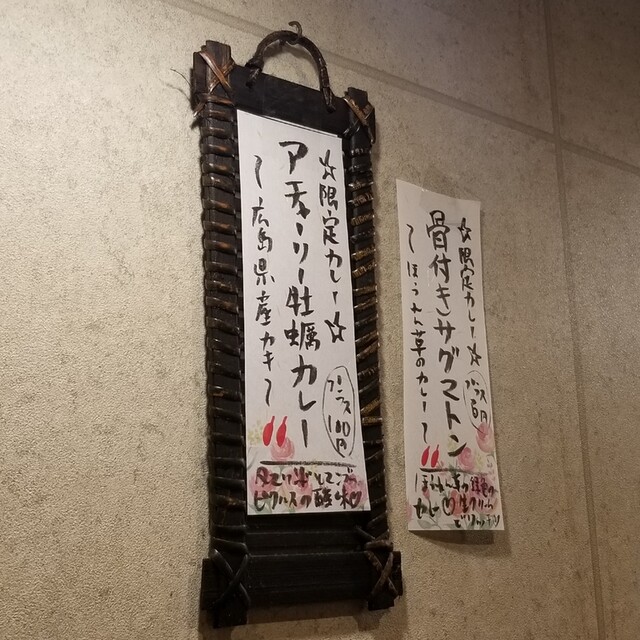 ☆限定カレー☆
アチャーリー牡蠣カレー
〜広島県産カキ〜
プラス
100円
ピクルスの酸味♡
☆限定カレー☆
骨付きサグマトン
〜ほうれん草のカレー〜
プラス
円
カレー♡